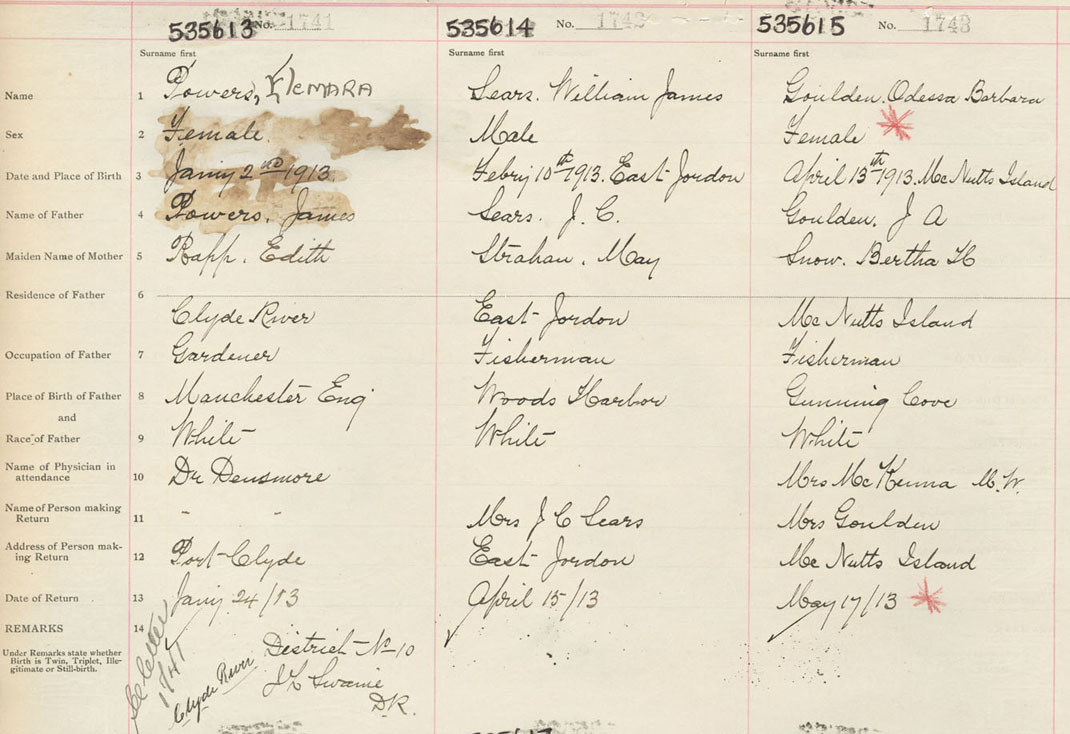 535613 No. 1741
535614 No. 1742
535615 No. 1743
Surname first
Surname first
Surname first
Name 1 Powers, Elemara
Sears. William James
Goulden. Odessa Barbara
Sex 2 Female
Male
Female
Date and Place of Birth 3 Jany 2nd 1913
Febry 10th 1913. East Jordon
April 13th 1913. McNutts Island
Name of Father 4 Powers. James
Sears. J. C.
Goulden. J A
Maiden Name of Mother 5 Rapp. Edith
Strahan. May
Snow. Bertha H
Residence of Father 6 Clyde River
East Jordon
Mc Nutts Island
Occupation of Father 7 Gardener
Fisherman
Fisherman
Place of Birth of Father 8 Manchester Eng
Woods Harbor
Gunning Cove
and
Race of Father 9 White
White
White
Name of Physician in
attendance 10 Dr Densmore
Mrs McKenna M.W.
Name of Person making
Return 11 - -
Mrs J C Sears
Mrs Goulden
Address of Person mak-
ing Return 12 Port Clyde
East Jordon
Mc Nutts Island
Date of Return 13 Jany 24/13
April 15/13
May 17/13
REMARKS 14
Under Remarks state whether
Birth is Twin, Triplet, Ille-
gitimate or Still-birth.
letter
Clyde River
District No 10
Swaine
D.R.